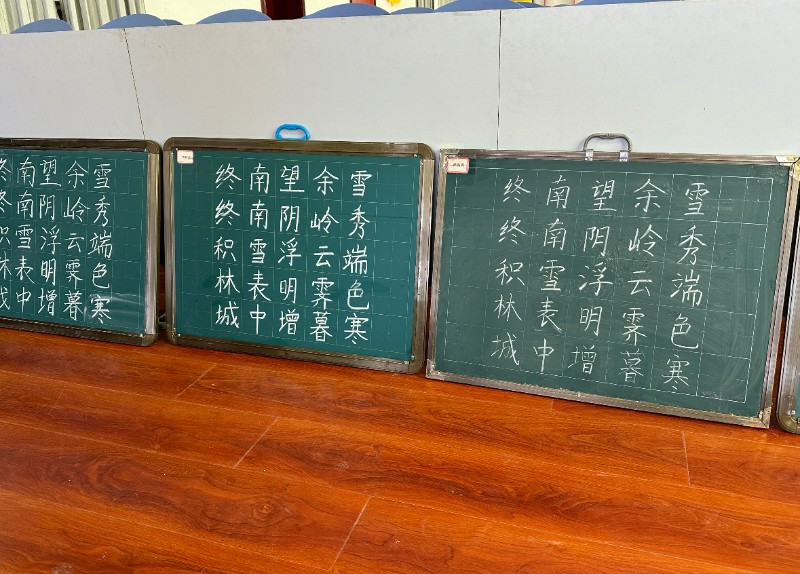 终南望余雪
终南阴岭秀
积雪浮云端
林表明霁色
城中增暮寒
终南望余雪
终南阴岭秀
积雪浮云端
林表明霁色
城中增暮寒
终南望余雪
终南阴岭秀
积雪浮云端
林表明霁色
城中增暮寒